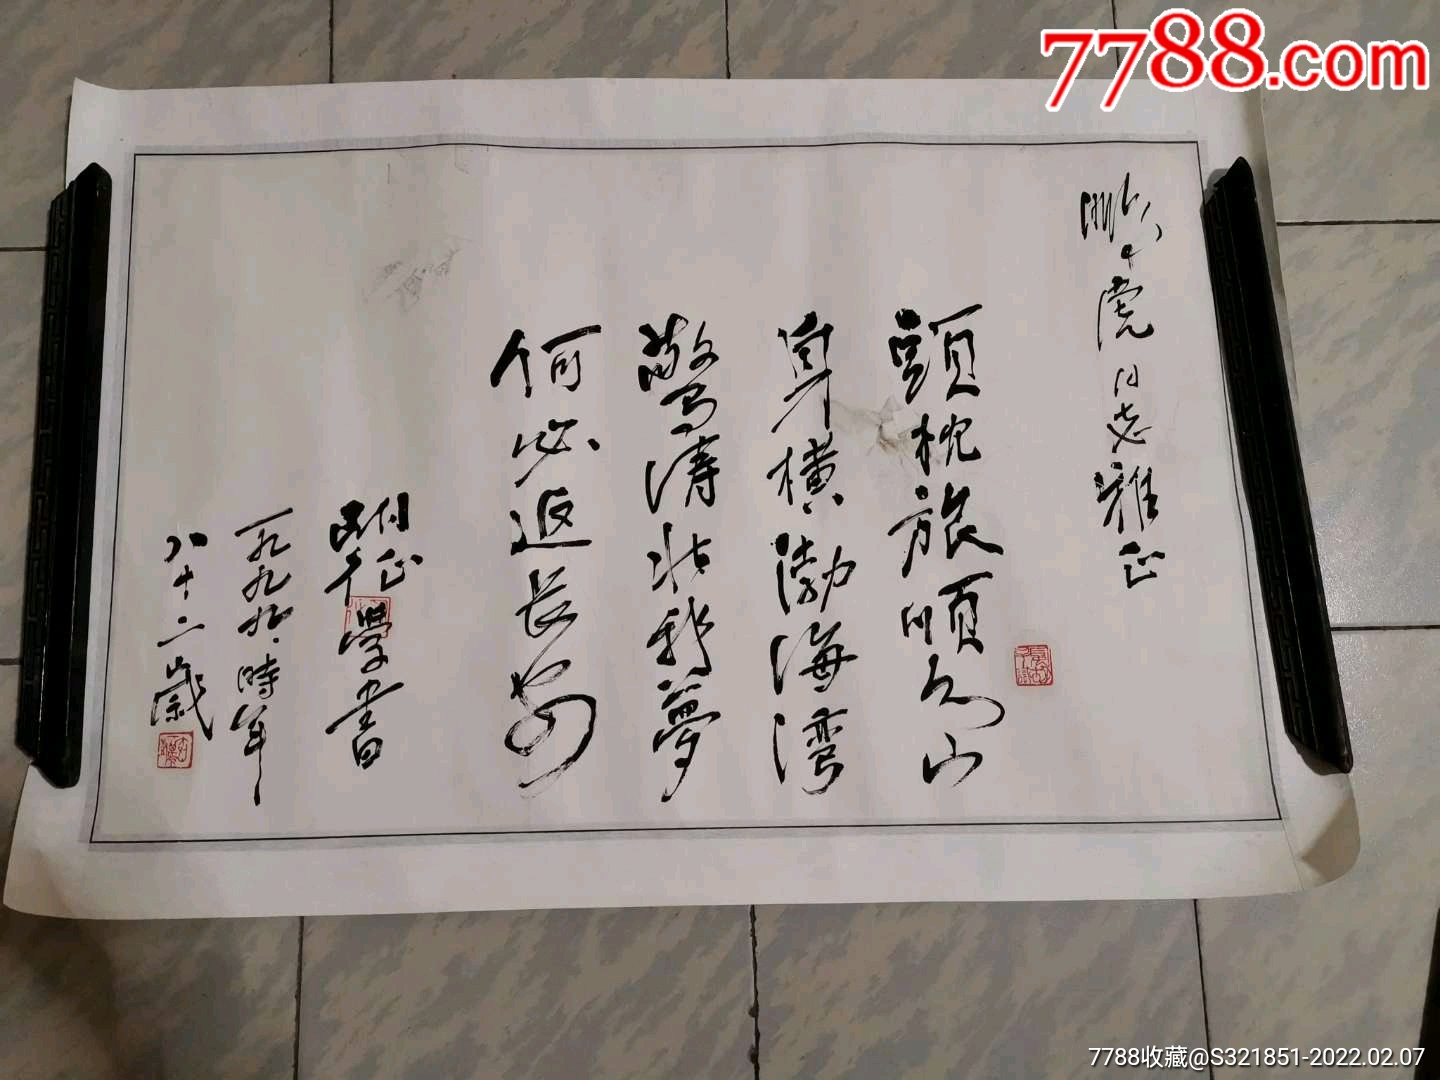 7788.com
虎同志雅正
頭枕旅順石山
身横渤海湾
驚涛壮我夢
何必返長安
學書
一九九九時年
八十二歲
7788收藏@S321851-2022.02.07